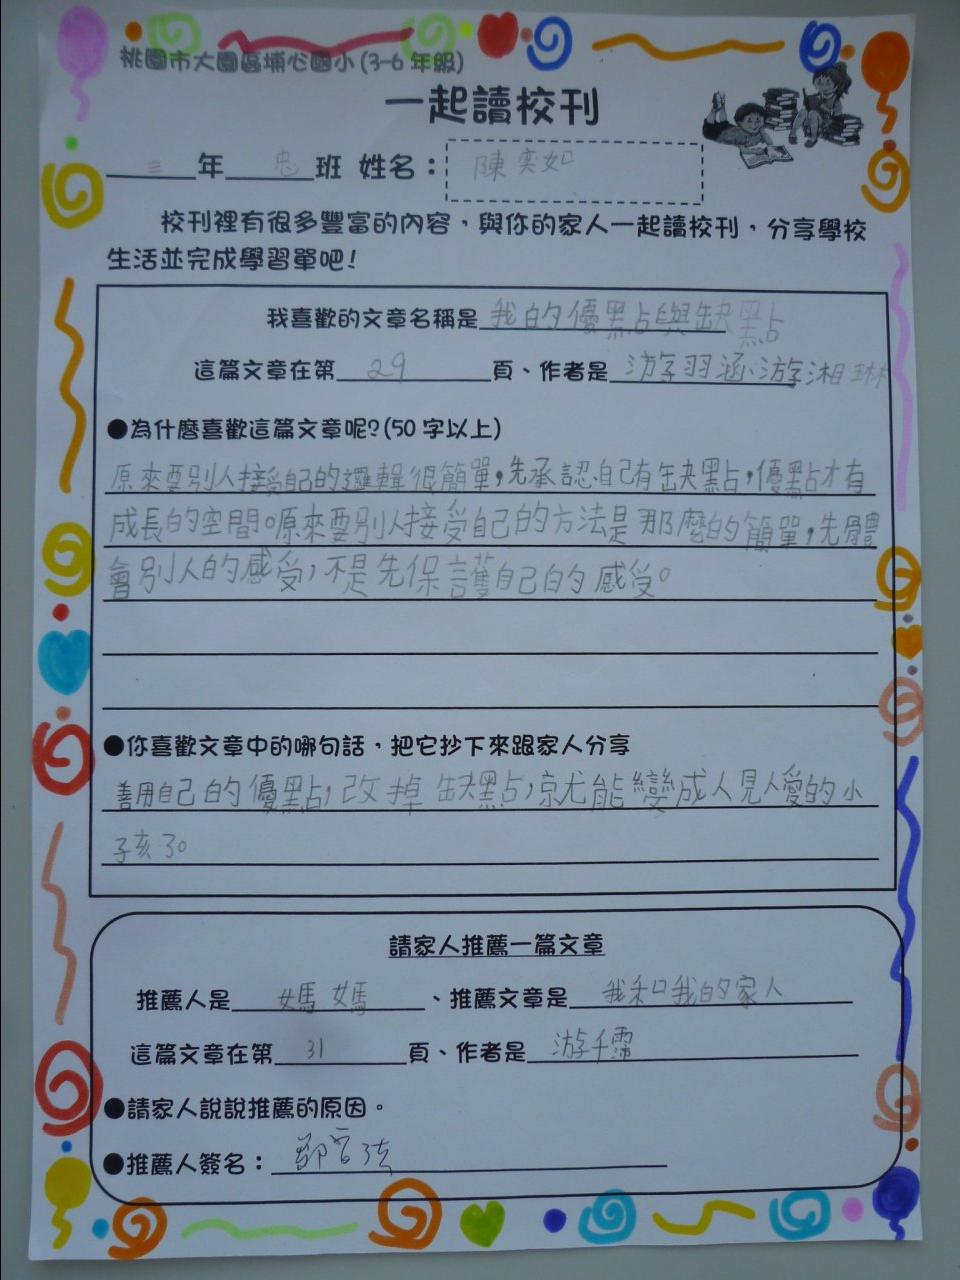 桃園市大園區埔心國小(3-6 年級)
一起讀校刊
三年忠班 姓名：陳奕如
校刊裡有很多豐富的內容，與你的家人一起讀校刊，分享學校
生活並完成學習單吧！
我喜歡的文章名稱是我的優點與缺點
這篇文章在第29頁、作者是游羽涵、游湘琳
●為什麼喜歡這篇文章呢?(50 字以上)
原來要別人接受自己的邏輯很簡單，先承認自己有缺點，優點才有
成長的空間。原來要別人接受自己的方法是那麼的簡單，先體
會別人的感受，不是先保護自己的感受。
●你喜歡文章中的哪句話，把它抄下來跟家人分享
善用自己的優點，改掉缺點，就能變成人見人愛的小
孩了。
請家人推薦一篇文章
推薦人是媽媽、推薦文章是我和我的家人
這篇文章在第31頁、作者是游千霈
●請家人說說推薦的原因。
●推薦人簽名：